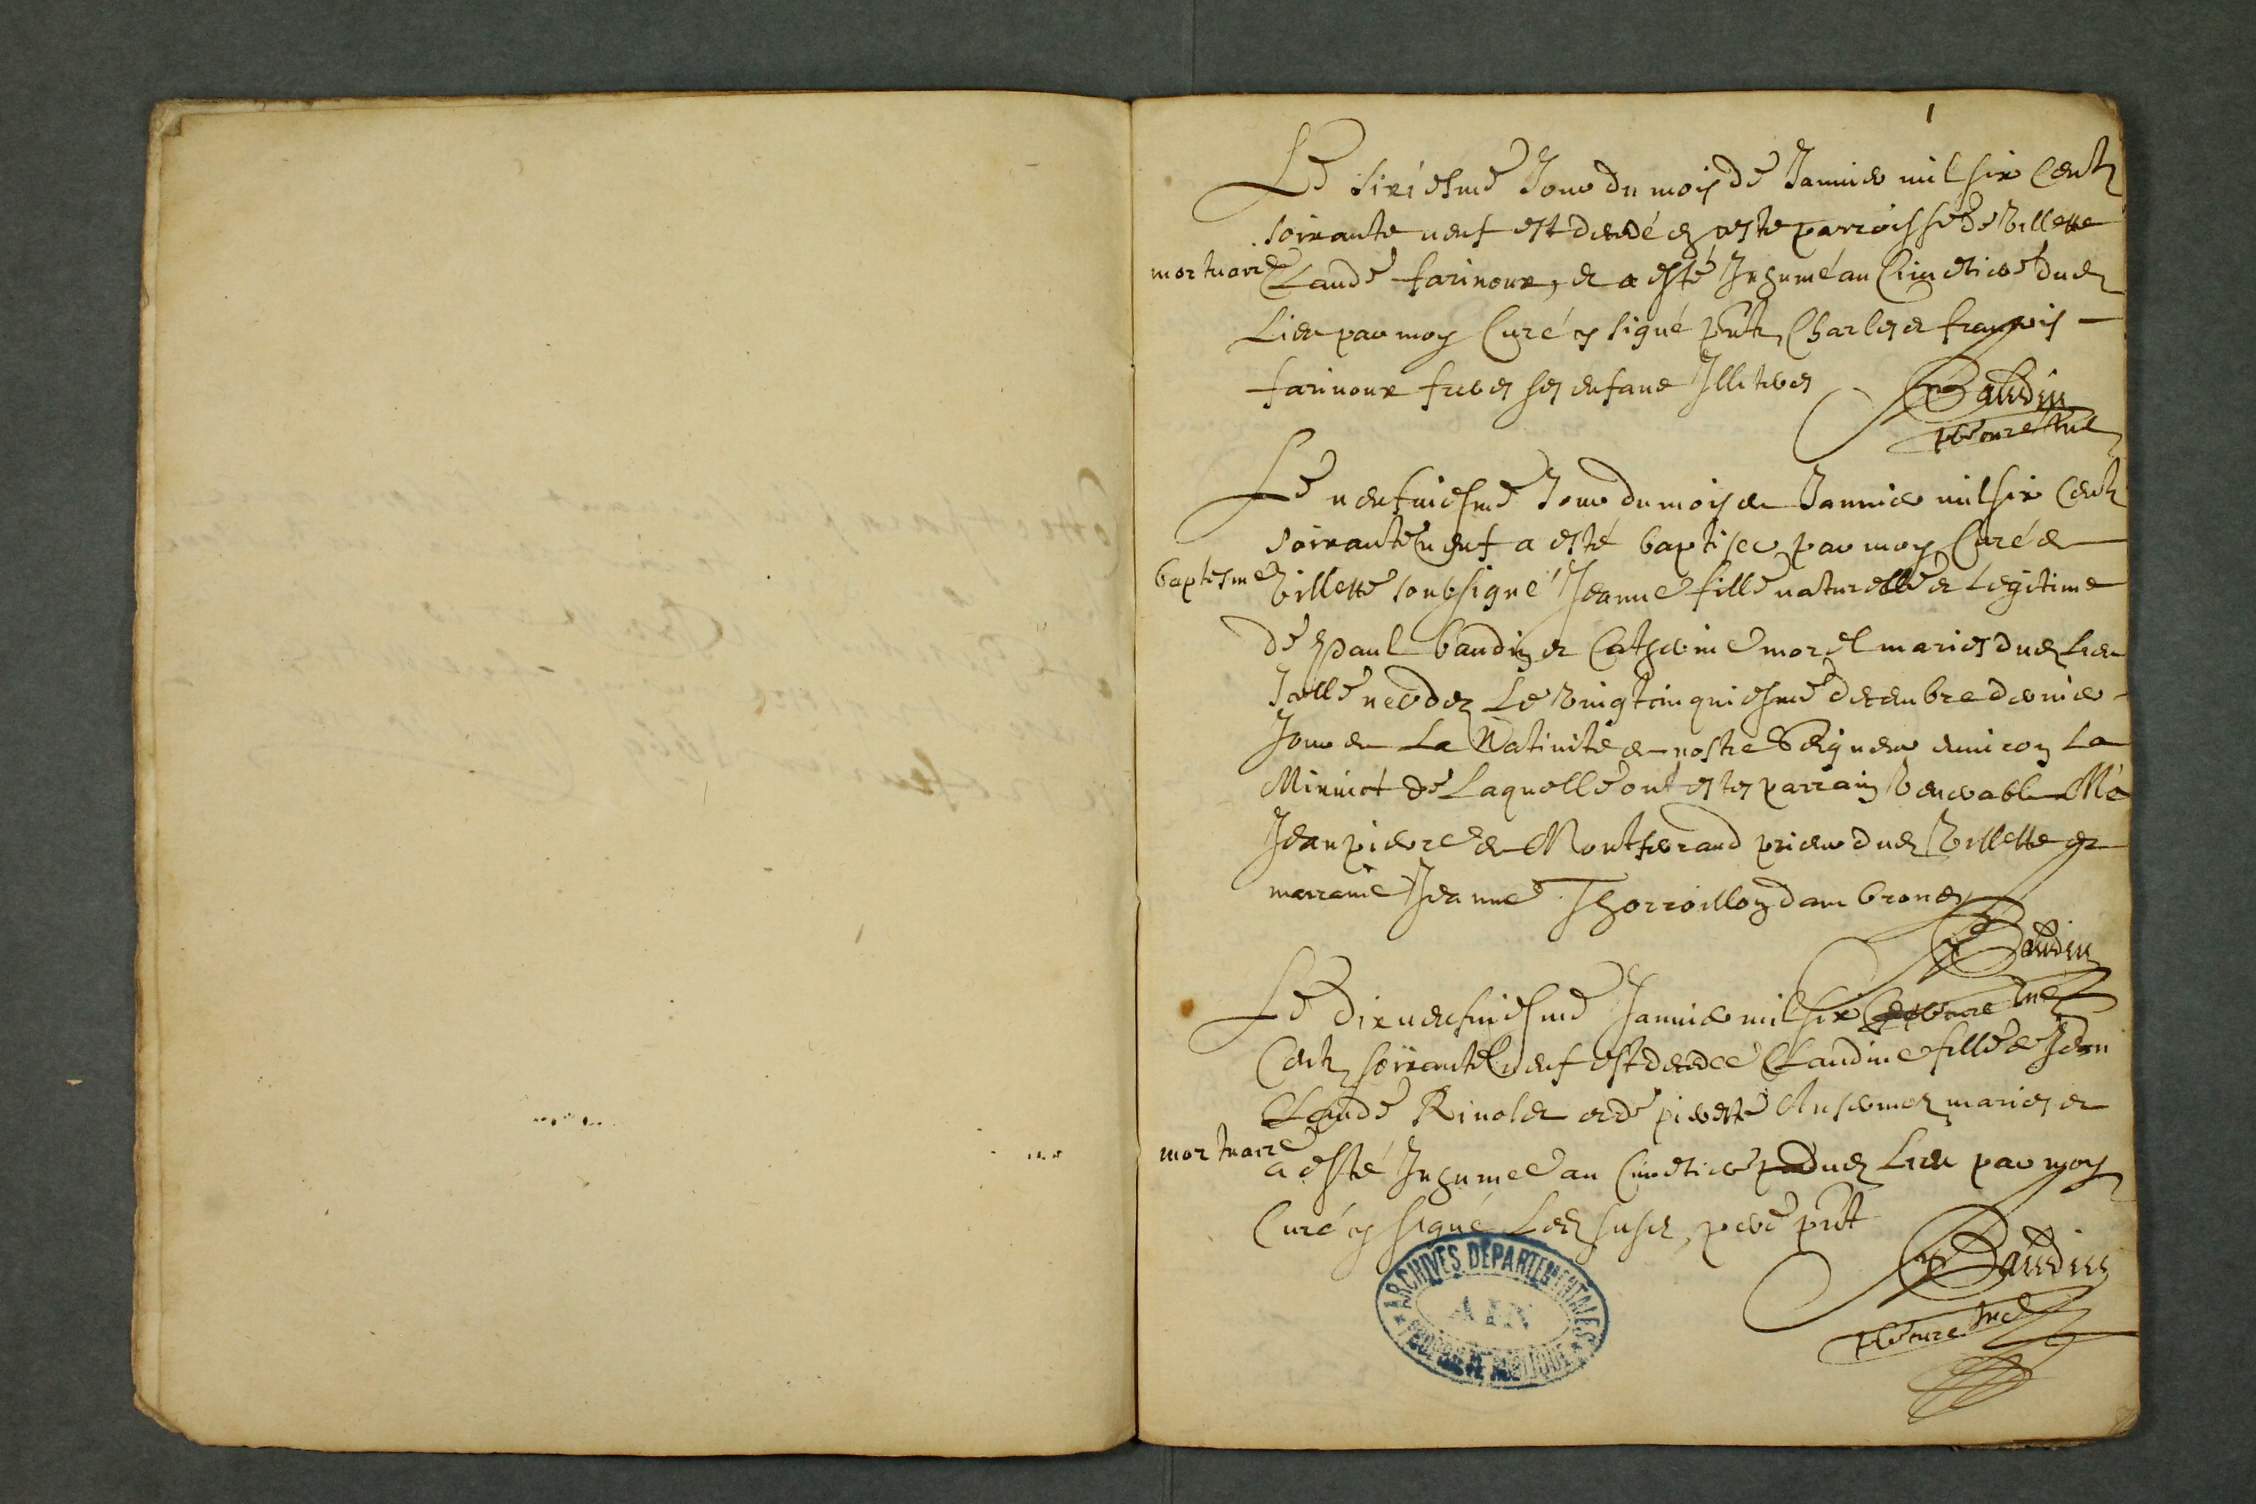 1
Le sixiesme Jour du mois de Januier mil six Centz
soixante neuf est decedé en ceste parroisse de Villette
mortuaire
Claude farinoux, et a esté Inhumé au Cimetiere dud
Lieu par moy Curé cy signé pnts Charles et françois
farinoux freres ses enfans Illiteres
Baudin
pbr curé
Le neufuiesme Jour du mois de Januier mil six Centz
soixante neuf a esté baptisee par moy Curé de
baptesme
Villette soubsigné Jeanne fille naturelle et Legitime
de Paul baudin et Catherine morel mariés dud Lieu
Icelle nee dez Le Vingtcinquiesme decembre dernier
Jour de La Natiuité de nostre Seigneur enuiron La
Minuict de Laquelle ont estes parrain Venerable Mre
Jean pierre de Montferrand prieur dud Villette et
marraine Jeanne Thorroillon dambronay
Baudin
pbr curé
Le dixneufuiesme Januier mil six
Centz soixante neuf est decedee Claudine fille de Jean
Claude Rinolet et de pierrette mariés et
mortuaire
a esté Inhumee au Cimetiere dud Lieu par moy
Curé cy signé Led susd pere pnt
Baudin
pbr curé
ARCHIVES DÉPARTEMENTALES
AIN
PROPRIÉTÉ PUBLIQUE